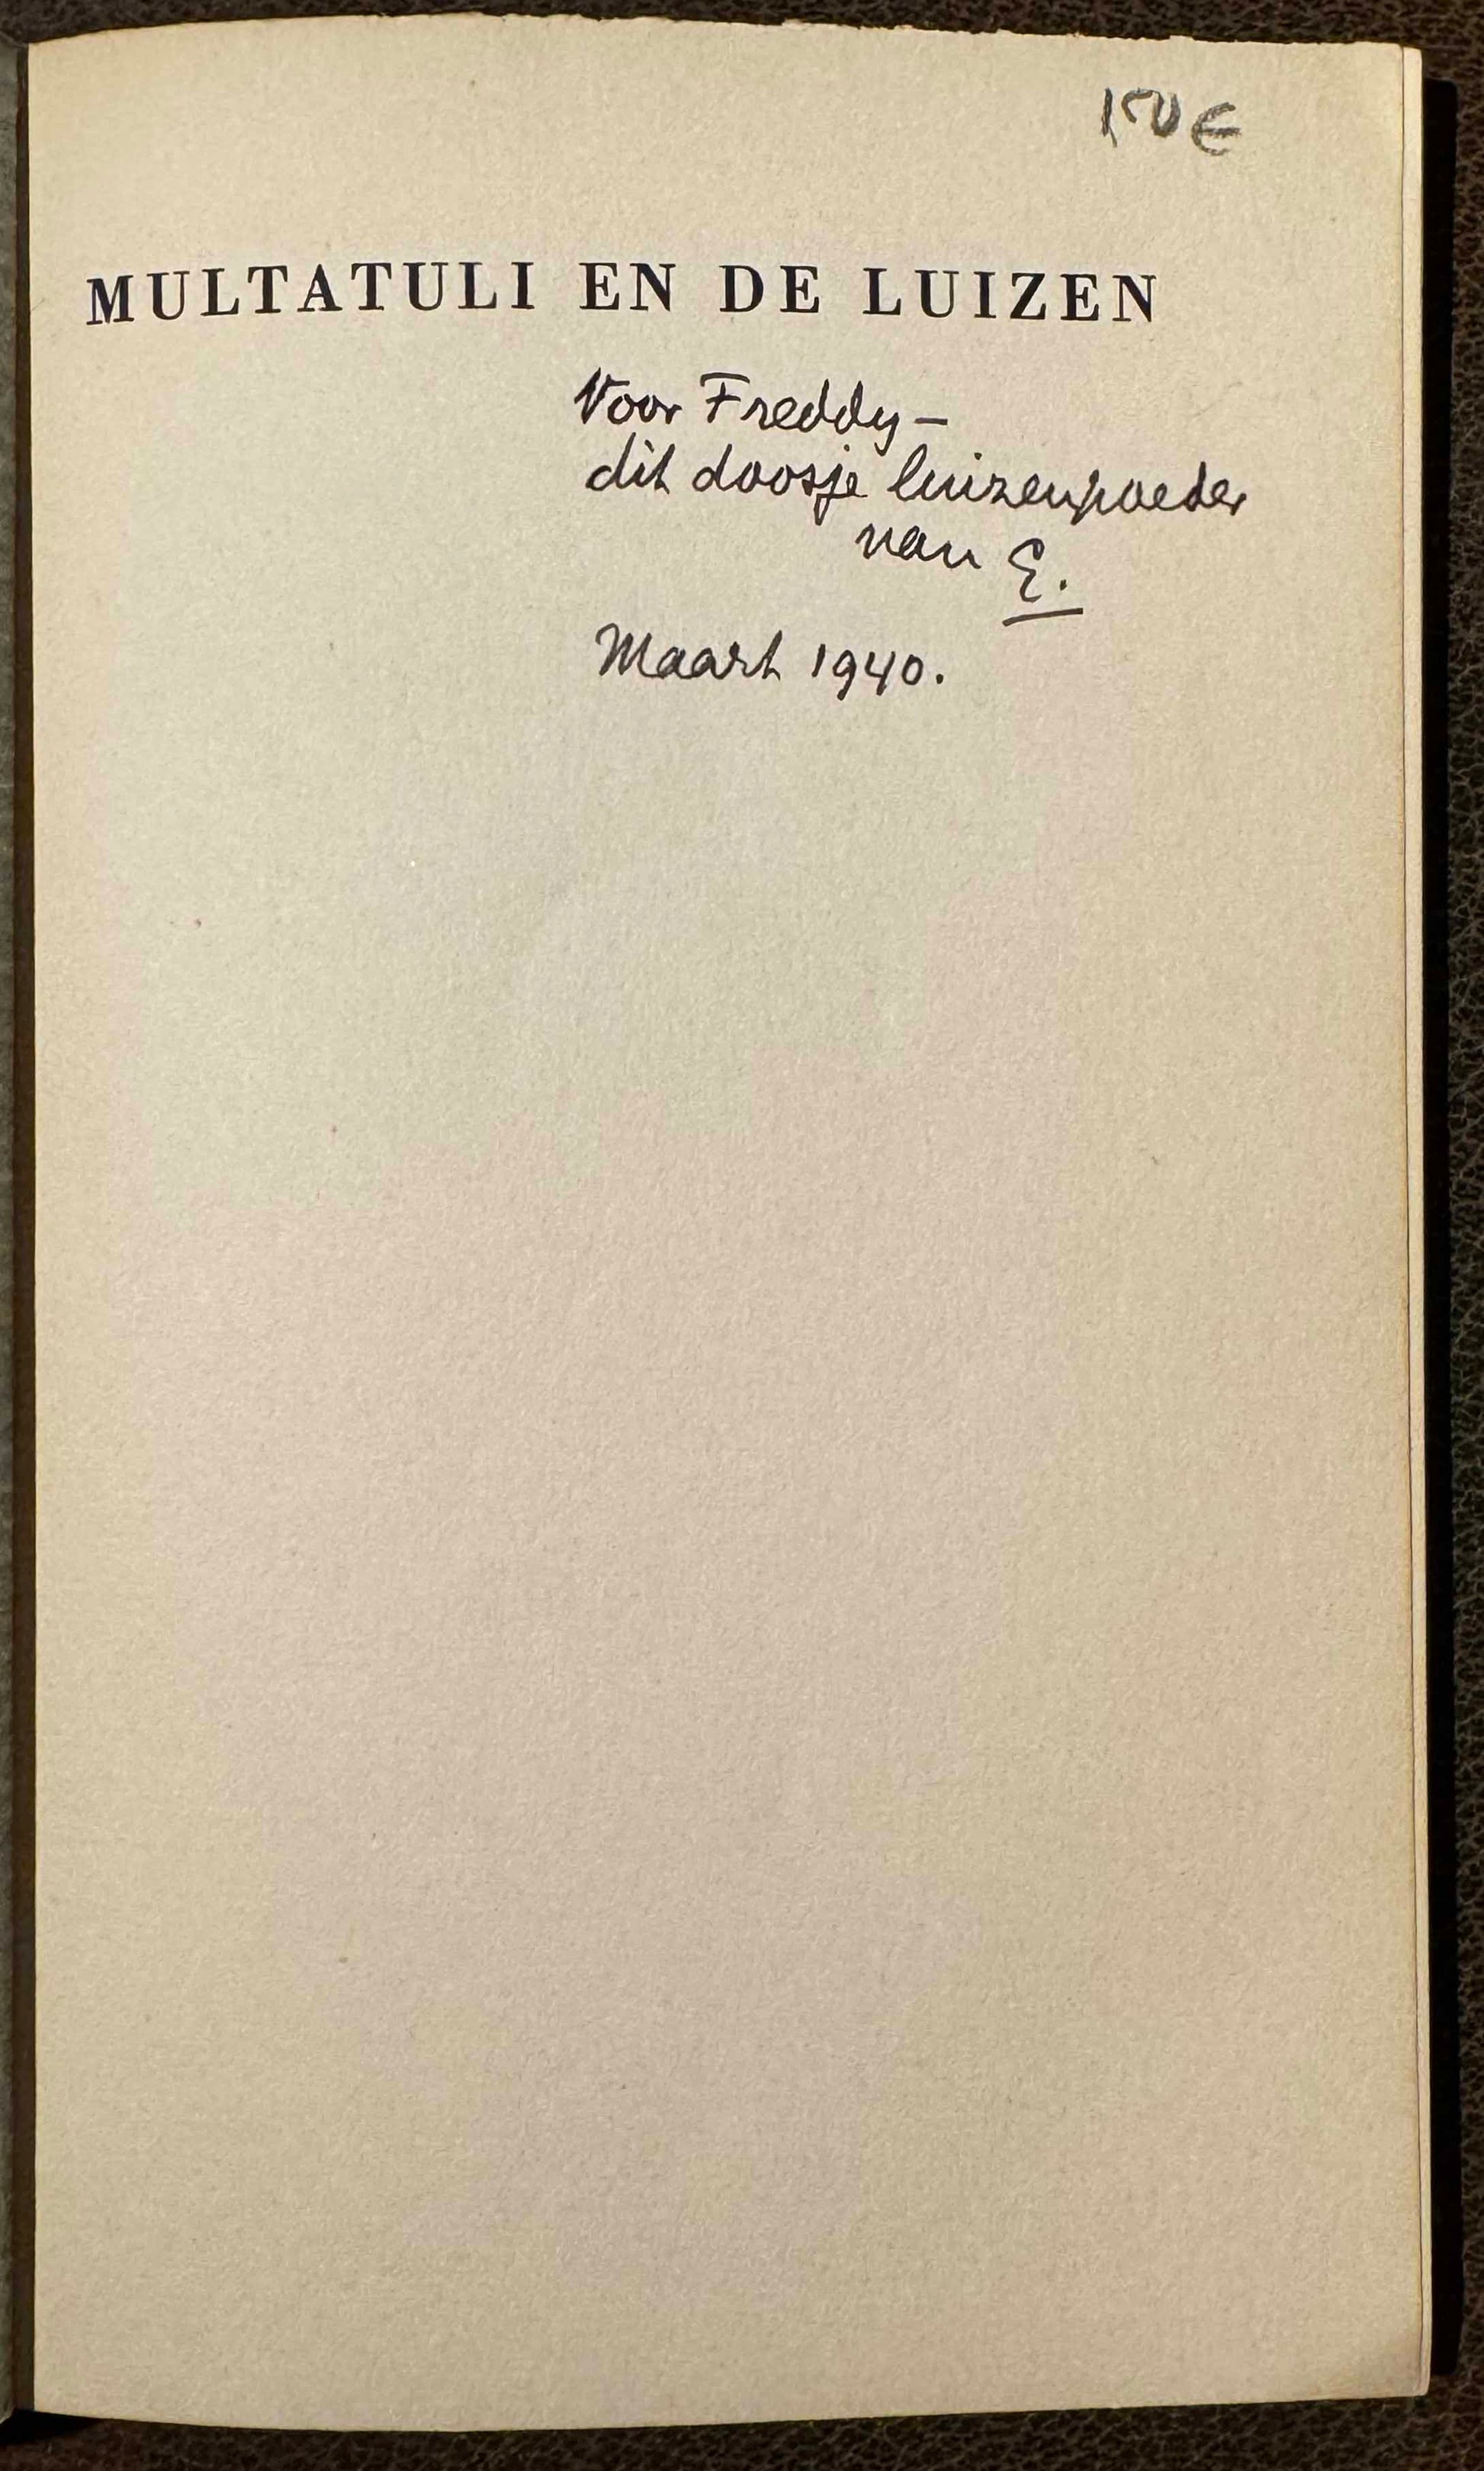 150 €
MULTATULI EN DE LUIZEN
Voor Freddy –
dit doosje luizenpoeder
van E.
Maart 1940.